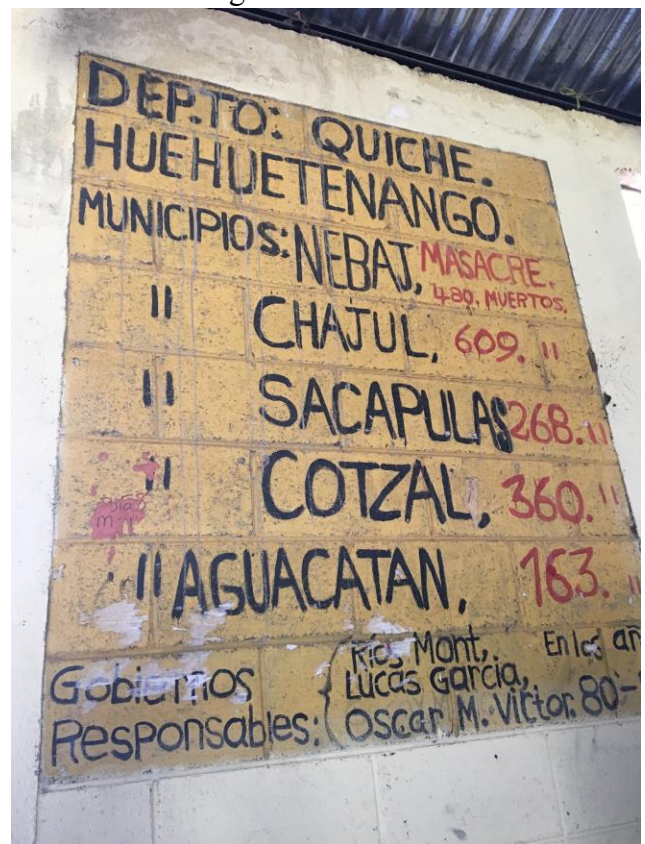 DEP.TO: QUICHE.
HUEHUETENANGO.
MUNICIPIOS: NEBAJ, MASACRE.
480, MUERTOS,
" CHAJUL, 609. "
" SACAPULAS 268. "
" COTZAL, 360. "
" AGUACATAN, 163. "
Gobiernos Responsables:
Ríos Mont, En los
Lucas Garcia,
Oscar M. Victor. 80-